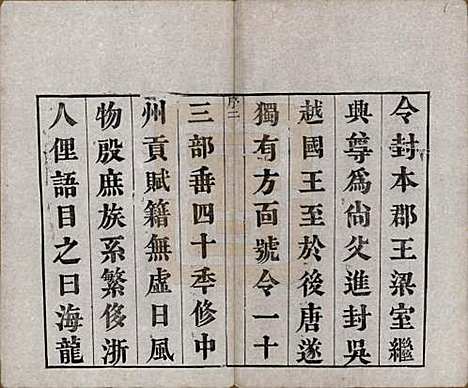 令封本郡王梁室繼
興尊爲尙父進封吳
越國王至於後唐遂
獨有方面號令一十
序二
三部垂四十秊修中
州貢賦籍無虛日風
物殷庶族系繁侈浙
人俚語目之曰海龍